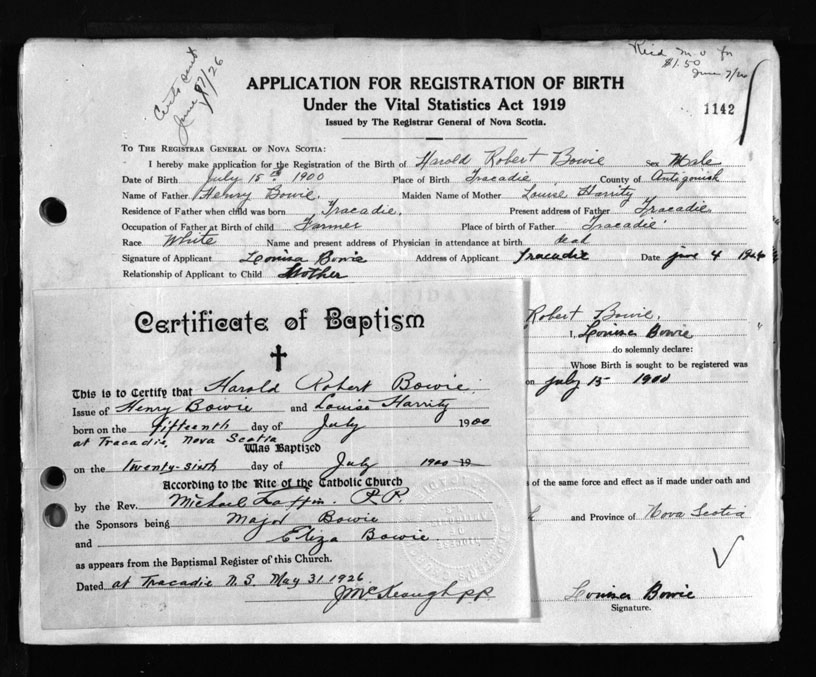 Certs sent
June 8/7/26
Recd M.O. for
$1.50
June 7/26
APPLICATION FOR REGISTRATION OF BIRTH
Under the Vital Statistics Act 1919
Issued by The Registrar General of Nova Scotia.
1142
TO THE REGISTRAR GENERAL OF NOVA SCOTIA:
I hereby make application for the Registration of the Birth of Harold Robert Bowie Sex Male
Date of Birth July 15th 1900 Place of Birth Tracadie County of Antigonish
Name of Father Henry Bowie. Maiden Name of Mother Louise Harrity
Residence of Father when child was born Tracadie. Present address of Father Tracadie
Occupation of Father at Birth of child Farmer Place of birth of Father Tracadie
Race White Name and present address of Physician in attendance at birth dead
Signature of Applicant Louisa Bowie Address of Applicant Tracadie Date June 4 1926
Relationship of Applicant to Child Mother
Robert Bowie.
I, Louisa Bowie
do solemnly declare:
Whose Birth is sought to be registered was
on July 15 1900
of the same force and effect as if made under oath and
and Province of Nova Scotia
Louisa Bowie
Signature.
Certificate of Baptism
This is to Certify that Harold Robert Bowie.
Issue of Henry Bowie and Louise Harrity
born on the fifteenth day of July 1900
at Tracadie, Nova Scotia
Was Baptized
on the twenty-sixth day of July 1900 19
According to the Rite of the Catholic Church
by the Rev. Michael Laffin. P.P.
the Sponsors being Major Bowie
and Eliza Bowie.
as appears from the Baptismal Register of this Church.
Dated at Tracadie N.S. May 31 1926.
J McKeough P.P.